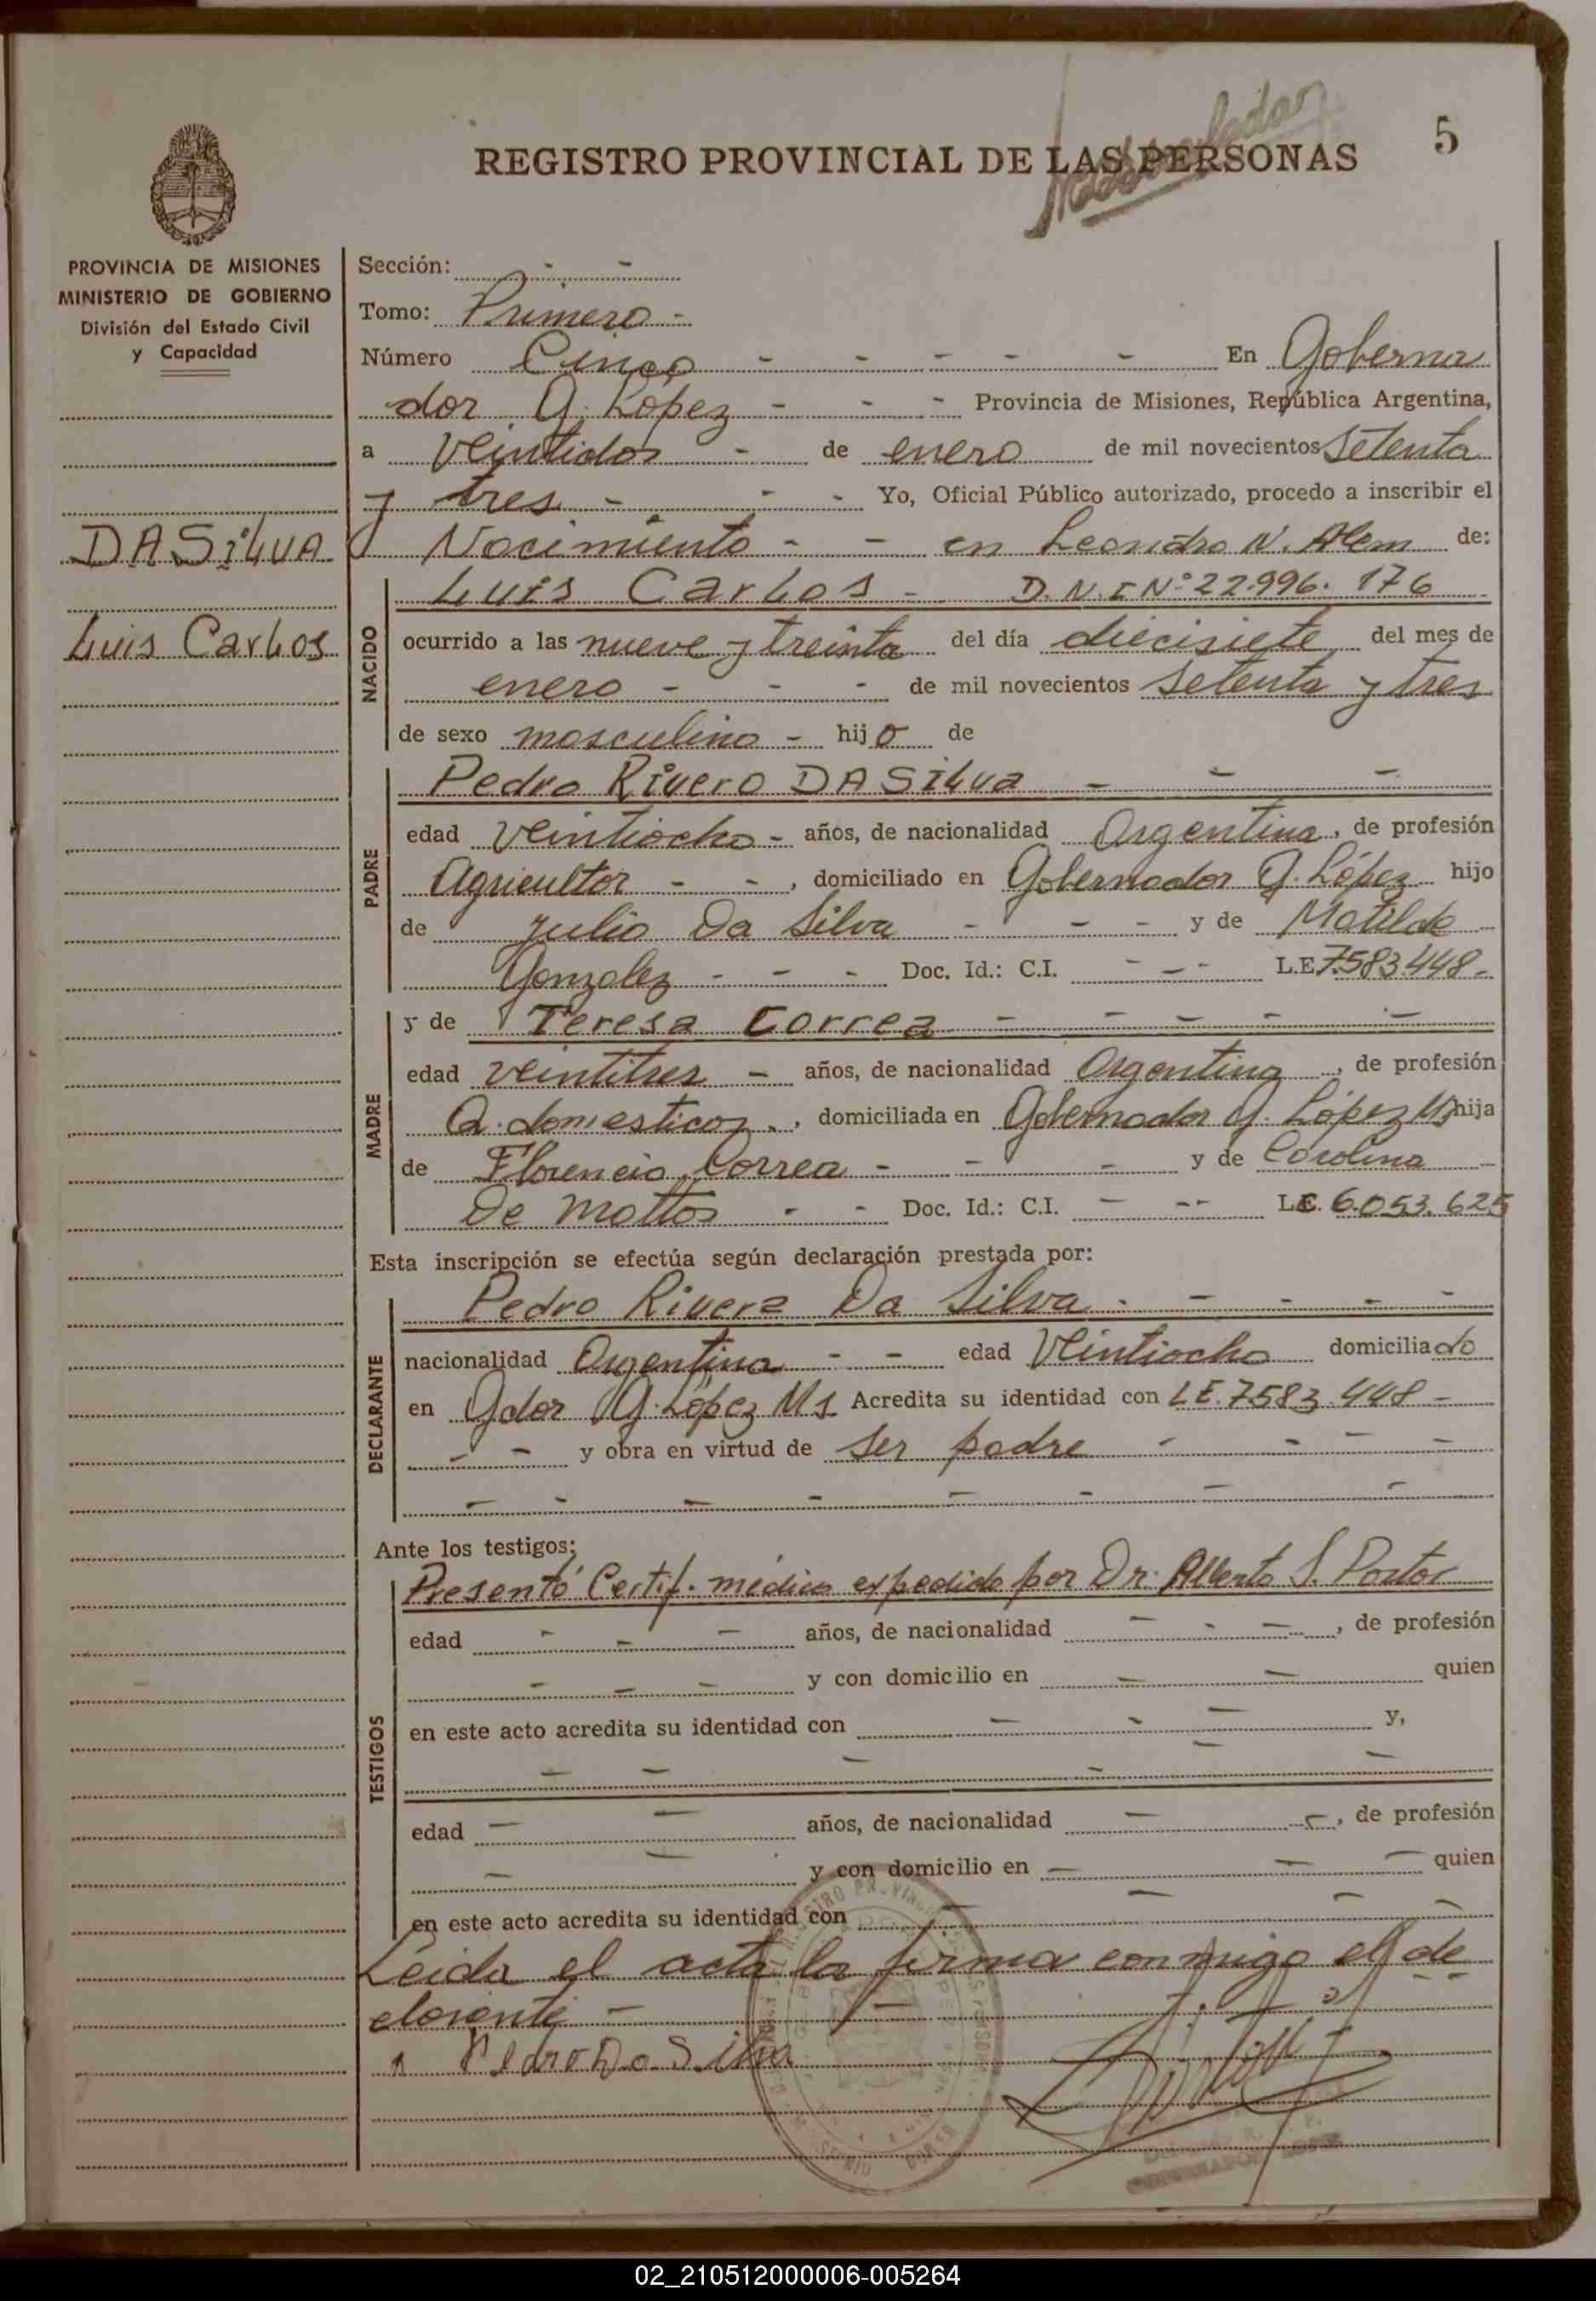 5
REGISTRO PROVINCIAL DE LAS PERSONAS
PROVINCIA DE MISIONES
MINISTERIO DE GOBIERNO
División del Estado Civil
y Capacidad
DASilva
Luis Carlos
Sección: - -
Tomo: Primero -
Número Cinco - - - - - En Goberna
dor G. López - - - Provincia de Misiones, República Argentina,
a veintidos - de enero de mil novecientos setenta
y tres - - - Yo, Oficial Público autorizado, procedo a inscribir el
Nacimiento - - en Leandro N. Alem de:
NACIDO
Luis Carlos - D.N.I Nº 22.996.176
ocurrido a las nueve y treinta del día diecisiete del mes de
enero - - - de mil novecientos setenta y tres
de sexo masculino - hijo de
PADRE
Pedro Rivero DASilva - - -
edad veintiocho - años, de nacionalidad Argentina, de profesión
Agricultor - -, domiciliado en Gobernador G. López hijo
de Julio Da Silva - - - y de Matilde
Gonzalez - - - Doc. Id.: C.I. - - - L.E 7.583.448-
MADRE
y de Teresa Correa - - - - -
edad veintitres - años, de nacionalidad Argentina, de profesión
Q. domesticos, domiciliada en Gobernador G. López Ms hija
de Florencio Correa - - - y de Carolina
De Mattos - - Doc. Id.: C.I. - -- LC. 6.053.625
Esta inscripción se efectúa según declaración prestada por:
DECLARANTE
Pedro Rivera Da Silva - - - - -
nacionalidad Argentina - - edad Veintiocho domiciliado
en Gdor G. López Ms Acredita su identidad con LE. 7583.448 -
- - y obra en virtud de ser padre - - - -
- - - - - - - -
Ante los testigos:
TESTIGOS
Presentó Certif. médico expedido por Dr. Alberto S. Pastor
edad - - - años, de nacionalidad - - -, de profesión
- - - y con domicilio en - - quien
en este acto acredita su identidad con - - - y,
- - - - - -
edad - - años, de nacionalidad - -, de profesión
- - y con domicilio en - - - quien
en este acto acredita su identidad con - - - -
Leida el acta la firma conmigo el de
clarante -
Pedro Da Silva
02_210512000006-005264